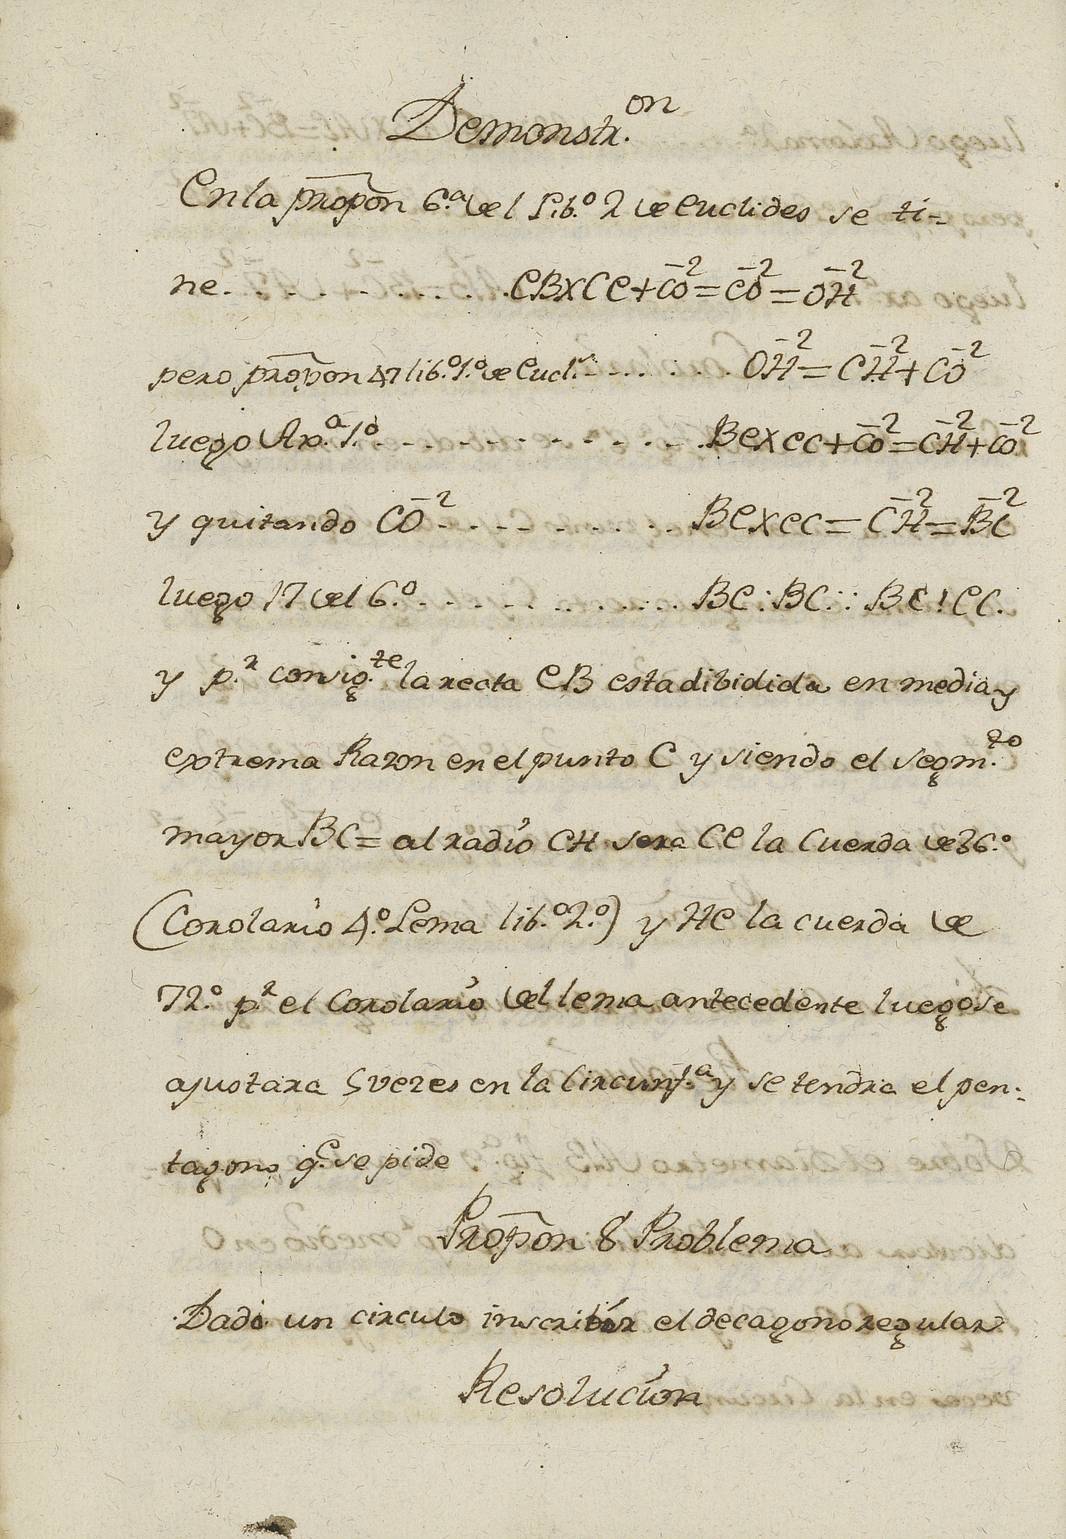 Demonstr.on
En la propon 6.a del Lib.o 2 de Euclides se ti-
ne. . . . . . . . . . . . EB×CE+CO²=EO²=OH²
pero propon 47 lib.o 1.o de Eucl.s . . . . . . . OH²=CH²+CO²
luego Ax.a 1.o . . . . . . . . . . . . BE×EC+CO²=CH²+CO²
y quitando CO² . . . . . . . . . BE×EC=CH²=BC²
luego 17 del 6.o . . . . . . . . . . . BE:BC::BC:EC.
y p.r consig.te la recta EB esta dibidida en media y
extrema Razon en el punto C y siendo el segm.to
mayor BC= al radio CH sera CE la Cuerda de 36.o
(Corolario 4.o Lema lib.o 2.o) y HE la cuerda de
72.o p.r el Corolario del lema antecedente luego se
ajustara 5 vezes en la Circunf.a y se tendra el pen-
tagono q.e se pide
Propon 8 Problema
Dado un circulo inscribir el decagono regular
Resolucion